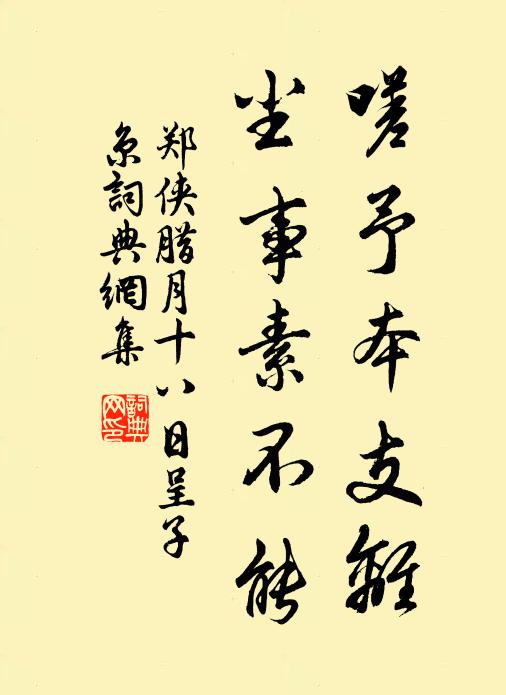 嗟予本支離
尘事素不能
郑侠腊月十八日呈子
京詞典網集
詞典
网印